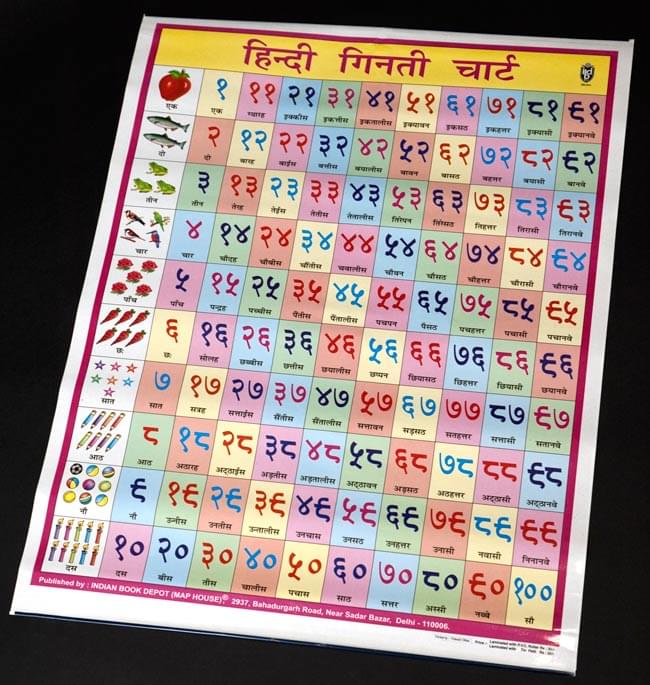 हिन्दी गिनती चार्ट
१ ११ २१ ३१ ४१ ५१ ६१ ७१ ८१ ९१
एक एक ग्यारह इक्कीस इकत्तीस इकतालीस इक्यावन इकसठ इकहत्तर इक्यासी इक्यानवे
२ १२ २२ ३२ ४२ ५२ ६२ ७२ ८२ ९२
दो दो बारह बाईस बत्तीस बयालीस बावन बासठ बहत्तर बयासी बानवे
३ १३ २३ ३३ ४३ ५३ ६३ ७३ ८३ ९३
तीन तीन तेरह तेईस तेतीस तेतालीस तिरेपन तिरेसठ तिहत्तर तिरासी तिरानवे
४ १४ २४ ३४ ४४ ५४ ६४ ७४ ८४ ९४
चार चार चौदह चौबीस चौंतीस चवालीस चौवन चौसठ चौहत्तर चौरासी चौरानवे
५ १५ २५ ३५ ४५ ५५ ६५ ७५ ८५ ९५
पाँच पाँच पन्द्रह पच्चीस पैंतीस पैंतालीस पचपन पैसठ पचहत्तर पचासी पचानवे
६ १६ २६ ३६ ४६ ५६ ६६ ७६ ८६ ९६
छः छः सोलह छब्बीस छत्तीस छयालीस छप्पन छियासठ छिहत्तर छियासी छयानवे
७ १७ २७ ३७ ४७ ५७ ६७ ७७ ८७ ९७
सात सात सत्रह सत्ताईस सैंतीस सैंतालीस सत्तावन सड़सठ सतहत्तर सत्तासी सतानवे
८ १८ २८ ३८ ४८ ५८ ६८ ७८ ८८ ९८
आठ आठ अठारह अट्ठाईस अड़तीस अड़तालीस अट्ठावन अड़सठ अठहत्तर अट्ठासी अट्ठानवे
९ १९ २९ ३९ ४९ ५९ ६९ ७९ ८९ ९९
नौ नौ उन्नीस उनतीस उन्तालीस उनचास उनसठ उनहत्तर उनासी नवासी निनानवे
१० २० ३० ४० ५० ६० ७० ८० ९० १००
दस दस बीस तीस चालीस पचास साठ सत्तर अस्सी नब्बे सौ
Published by : INDIAN BOOK DEPOT (MAP HOUSE)© 2937, Bahadurgarh Road, Near Sadar Bazar, Delhi - 110006.